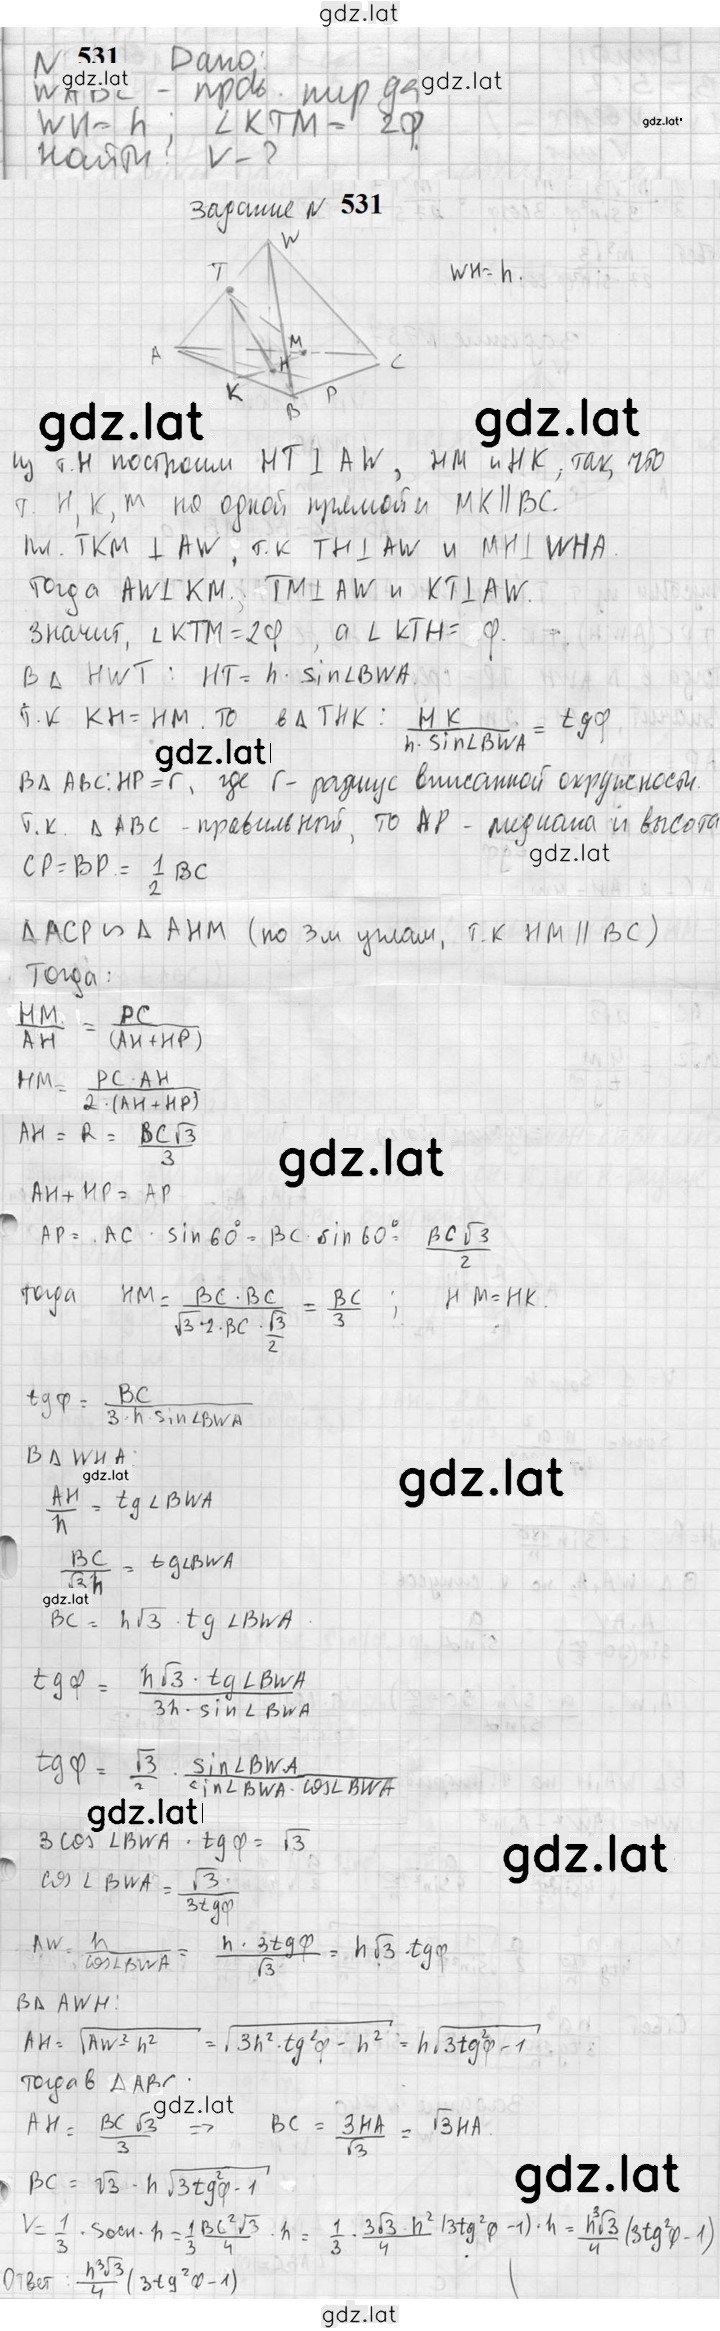 gdz.lat
N 531 Дано:
gdz.lat
gdz.lat
WABC - прав. пирамида
WH = h; ∠KTM = 2φ
gdz.lat
Найти: V-?
Задание N 531
W
T
WH = h.
A
M
H
C
K
B
P
gdz.lat
gdz.lat
Из т.H построим HT ⊥ AW, HM и HK, так, что
т. H, K, M на одной прямой и MK || BC.
Пл. TKM ⊥ AW, т.к TH ⊥ AW и MH ⊥ WHA.
Тогда AW ⊥ KM, TM ⊥ AW и KT ⊥ AW.
Значит, ∠KTM = 2φ, а ∠KTH = φ.
В Δ HWT: HT = h · sin∠BWA.
Т.к KH = HM, то в Δ THK: HK / (h · sin∠BWA) = tgφ
gdz.lat
В Δ ABC: HP = r, где r - радиус вписанной окружности.
Т.к. Δ ABC - правильный, то AP - медиана и высота
gdz.lat
CP = BP = 1/2 BC
Δ ACP ∽ Δ AHM (по 3м углам, т.к HM || BC)
Тогда:
HM/AH = PC/(AH+HP)
HM = PC·AH / 2·(AH+HP)
AH = R = BC√3/3
gdz.lat
AH + HP = AP
AP = AC · sin60° = BC · sin60° = BC√3/2
тогда HM = BC·BC / (√3·2·BC·√3/2) = BC/3; HM = HK.
tgφ = BC / (3·h·sin∠BWA)
В Δ WHA:
gdz.lat
gdz.lat
AH/h = tg∠BWA
BC/√3h = tg∠BWA
gdz.lat
BC = h√3 · tg∠BWA.
tgφ = h√3 · tg∠BWA / 3h · sin∠BWA
tgφ = √3/2 · sin∠BWA / sin∠BWA · cos∠BWA
gdz.lat
3cos∠BWA · tgφ = √3
gdz.lat
cos∠BWA = √3/3tgφ
AW = h/cos∠BWA = h·3tgφ/√3 = h√3 · tgφ
В Δ AWH:
AH = √(AW² - h²) = √(3h²·tg²φ - h²) = h√(3tg²φ - 1)
тогда в Δ ABC:
gdz.lat
AH = BC√3/3 => BC = 3HA/√3 = √3HA.
gdz.lat
BC = √3 · h√(3tg²φ - 1)
V = 1/3 · Sосн · h = 1/3 BC²√3/4 · h = 1/3 · 3√3·h²/4 (3tg²φ - 1)·h = h³√3/4 (3tg²φ - 1)
Ответ: h³√3/4 (3tg²φ - 1)
gdz.lat